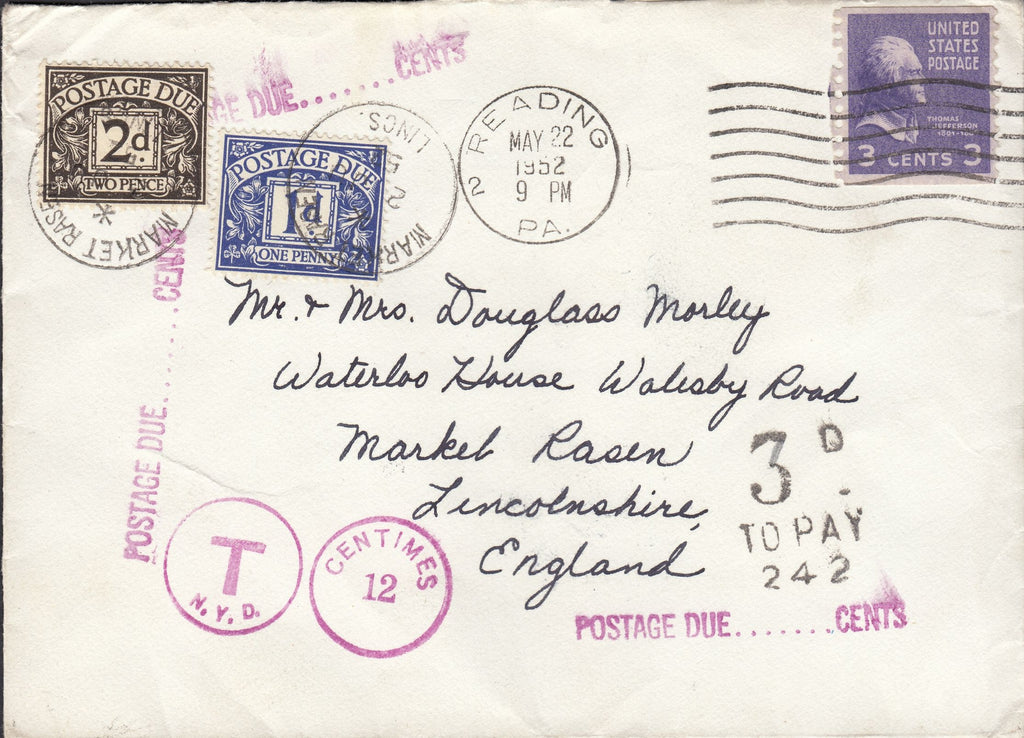 UNITED
STATES
POSTAGE
THOMAS
JEFFERSON
3 CENTS 3
POSTAGE DUE
2d.
TWO PENCE
POSTAGE DUE
1d
ONE PENNY
GE DUE........CENTS
MARKET RASE
LINCS.
MARK
READING
2
MAY 22
1952
9 PM
PA.
Mr. & Mrs. Douglass Morley
Waterloo House Walesby Road
Market Rasen
Lincolnshire,
England
3 D.
TO PAY
242
POSTAGE DUE........CENTS
T
N.Y.D.
CENTIMES
12
POSTAGE DUE.......CENTS